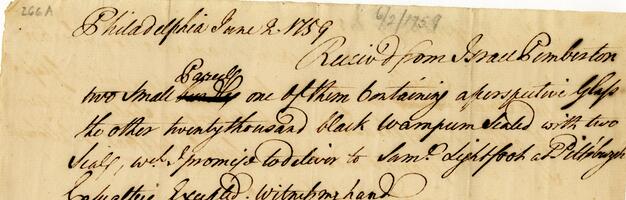 266A
6/2/1759
Philadelphia June 2. 1759
Receiv'd from Israel Pemberton
Parcells
two Small bundles one of them Containing a perspective Glass
the other twenty thousand black wampum Sealed with two
Seals, wch. I promise to deliver to Saml. Lightfoot at Pittsburgh
Casualties Excepted. Witness my hand